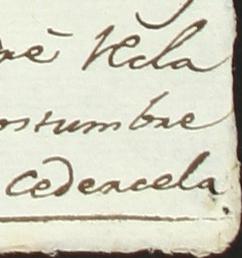 rè Hela
ostumbre
cedercela